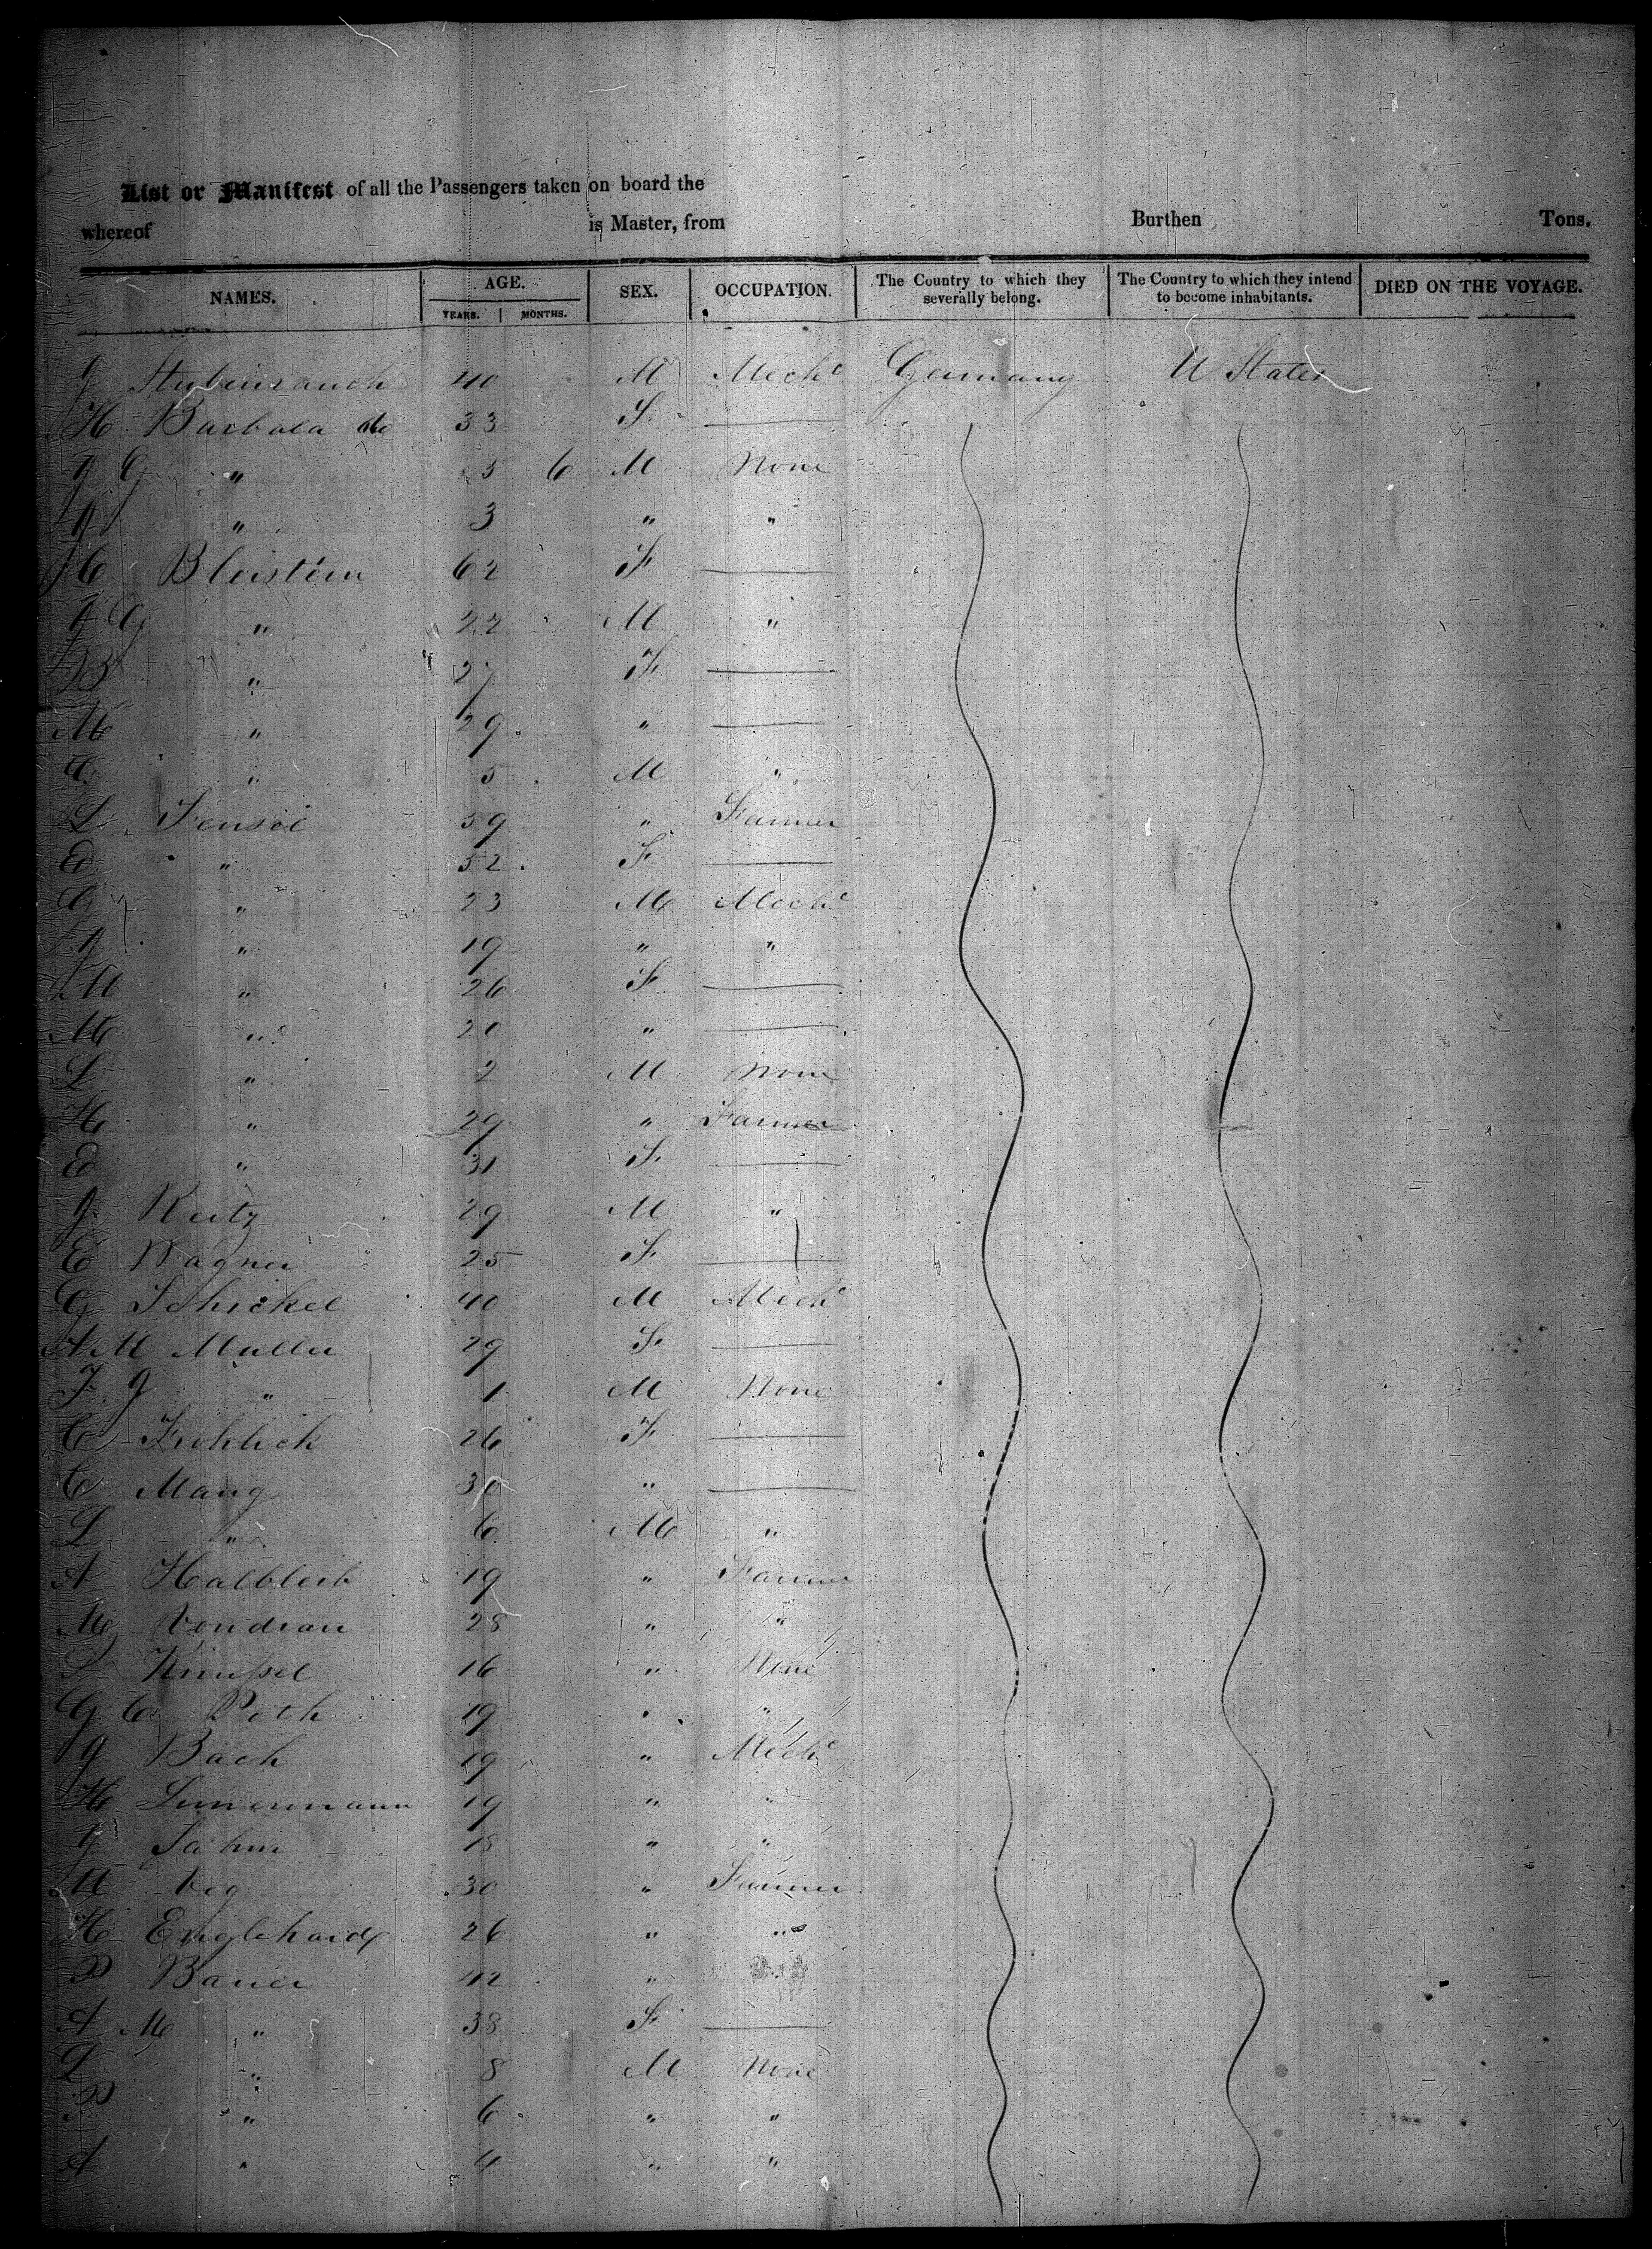 List or Manifest of all the Passengers taken on board the
whereof is Master, from Burthen Tons.
NAMES. AGE. SEX. OCCUPATION. The Country to which they severally belong. The Country to which they intend to become inhabitants. DIED ON THE VOYAGE.
YEARS. MONTHS.
J Stubenrauch 40 M Mechc Germany U States
H Barbala do 33 F
J G " 5 6 M None
J " 3 " "
C Bleistein 62 F
J G " 22 M "
B " 27 F
M " 29 "
C " 5 M "
L Fensel 59 " Farmer
E " 52 F
G " 23 M Mechc
J " 19 " "
M " 26 F
M " 20 "
L " 2 M None
H " 29 " Farmer
E " 31 F
J Reitz 29 M "
E Wagner 25 F
G Schickel 40 M Mechc
A M Muller 29 F
F J " 1 M None
C Frohlich 26 F
C Mang 30 "
L " 6 M "
A Halbleib 19 " Farmer
M Vondran 28 " "
16 " None
G C Roth 19 " "
J Bach 19 " Mechc
H 19 " "
J 18 " "
M 30 " Farmer
H Englehardt 26 " "
P Bauer 42 "
A M " 38 F
L " 8 M None
P " 6 " "
A " 4 " "